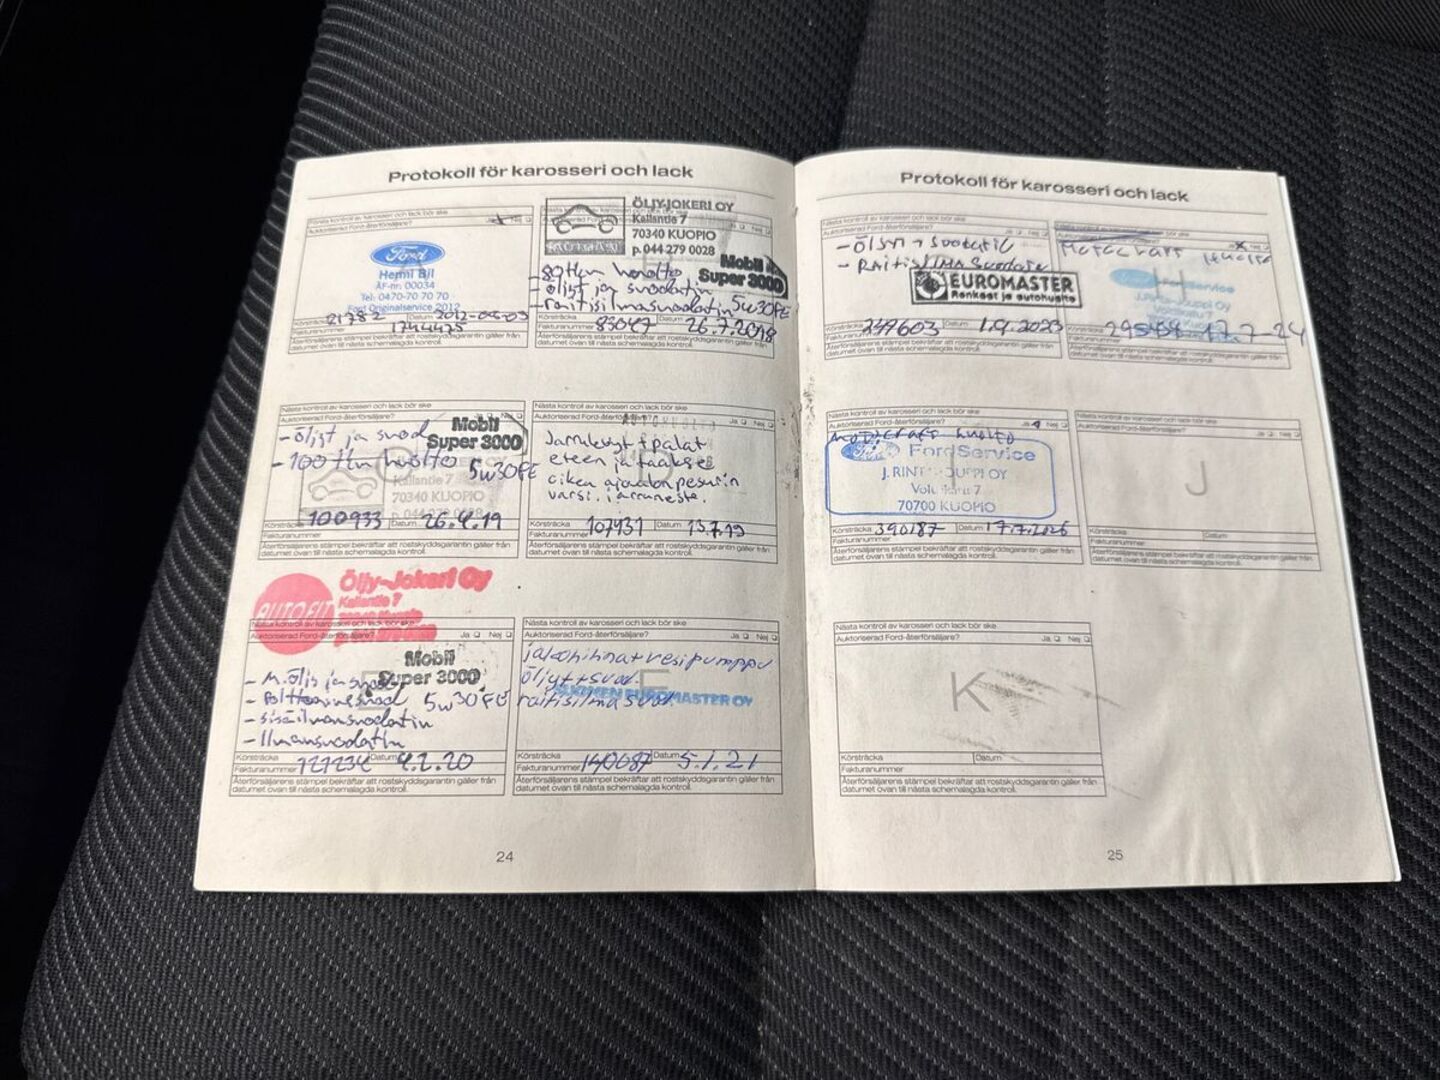 Protokoll för karosseri och lack
Ford
Hemi Bil
ÅF-nr: 00034
Tel: 0470-70 70 70
Ford Originalservice 2012
Körsträcka 21782 Datum 2012-08-03
Fakturanummer 1744475
Återförsäljarens stämpel bekräftar att rostskyddsgarantin gäller från
datumet ovan till nästa schemalagda kontroll.
ÖLJY-JOKERI OY
Kallantie 7
70340 KUOPIO
p. 044 279 0028
Mobil
Super 3000
- öljyt ja suodatin
- raitisilmasuodatin 5w30FE
Körsträcka 83047 Datum 26.7.2018
Fakturanummer
Återförsäljarens stämpel bekräftar att rostskyddsgarantin gäller från
datumet ovan till nästa schemalagda kontroll.
Nästa kontroll av karosseri och lack bör ske
Auktoriserad Ford-återförsäljare? Ja Nej
Mobil
Super 3000
- öljyt ja suod
- 100 tkm huolto 5w30FE
Kallantie 7
70340 KUOPIO
p. 044 279 0028
Körsträcka 100933 Datum 26.4.19
Fakturanummer
Återförsäljarens stämpel bekräftar att rostskyddsgarantin gäller från
datumet ovan till nästa schemalagda kontroll.
Nästa kontroll av karosseri och lack bör ske
Auktoriserad Ford-återförsäljare? Ja Nej
D
Jarrulevyt + palat
eteen ja taakse
oikea ajovalonpesurin
varsi, jarruneste.
Körsträcka 107931 Datum 13.7.19
Fakturanummer
Återförsäljarens stämpel bekräftar att rostskyddsgarantin gäller från
datumet ovan till nästa schemalagda kontroll.
AUTOFIT
Öljy-Jokeri Oy
Kallantie 7
Nästa kontroll av karosseri och lack bör ske
Auktoriserad Ford-återförsäljare? Ja Nej
Mobil
Super 3000
- M.öljy ja suod
- Polttoainesuod 5w30FE
- sisäilmansuodatin
- Ilmansuodatin
Körsträcka 127234 Datum 4.2.20
Fakturanummer
Återförsäljarens stämpel bekräftar att rostskyddsgarantin gäller från
datumet ovan till nästa schemalagda kontroll.
Nästa kontroll av karosseri och lack bör ske
Auktoriserad Ford-återförsäljare? Ja Nej
F
jakohihna + vesipumppu
öljyt + suod.
raitisilma suod.
EUROMASTER OY
Körsträcka 140687 Datum 5.1.21
Fakturanummer
Återförsäljarens stämpel bekräftar att rostskyddsgarantin gäller från
datumet ovan till nästa schemalagda kontroll.
24
Protokoll för karosseri och lack
Nästa kontroll av karosseri och lack bör ske
- ÖLJYN + Suodatin
- RAITISILMA Suodatin
EUROMASTER
Renkaat ja autohuolto
Körsträcka 249603 Datum 1.9.2023
Fakturanummer
Återförsäljarens stämpel bekräftar att rostskyddsgarantin gäller från
datumet ovan till nästa schemalagda kontroll.
Motorcraft Huolto
H
FordService
J.Rinta-Jouppi Oy
Körsträcka 295484 17.7-24
Återförsäljarens stämpel bekräftar att rostskyddsgarantin gäller från
datumet ovan till nästa schemalagda kontroll.
Nästa kontroll av karosseri och lack bör ske
Auktoriserad Ford-återförsäljare? Ja Nej
Motorcraft huolto
Ford FordService
J. RINTA-JOUPPI OY
70700 KUOPIO
Körsträcka 390187 Datum 17.7.2026
Fakturanummer
Återförsäljarens stämpel bekräftar att rostskyddsgarantin gäller från
datumet ovan till nästa schemalagda kontroll.
Nästa kontroll av karosseri och lack bör ske
Auktoriserad Ford-återförsäljare? Ja Nej
J
Körsträcka Datum
Fakturanummer
Återförsäljarens stämpel bekräftar att rostskyddsgarantin gäller från
datumet ovan till nästa schemalagda kontroll.
Nästa kontroll av karosseri och lack bör ske
Auktoriserad Ford-återförsäljare? Ja Nej
K
Körsträcka Datum
Fakturanummer
Återförsäljarens stämpel bekräftar att rostskyddsgarantin gäller från
datumet ovan till nästa schemalagda kontroll.
25